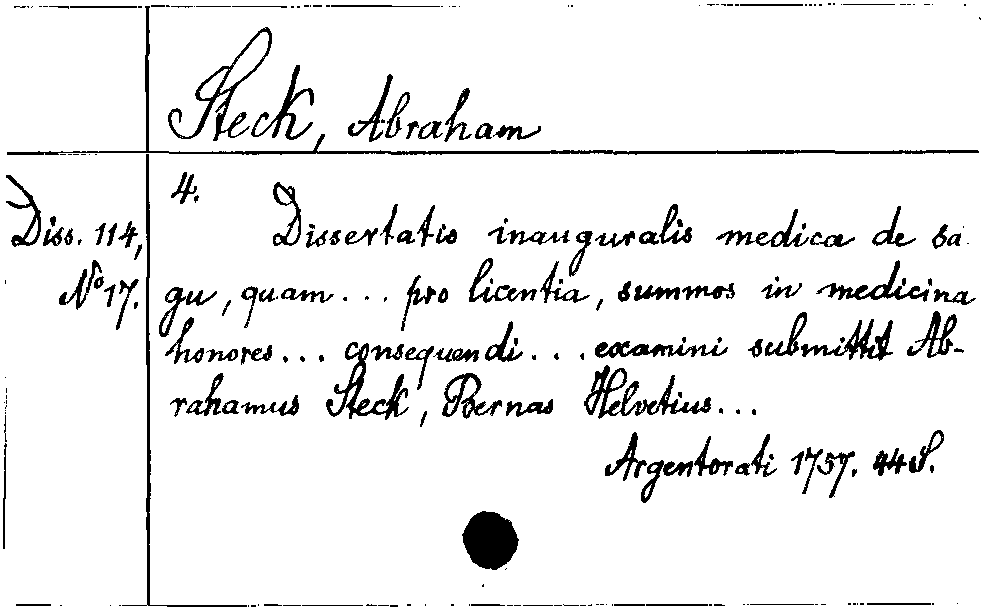 Steck, Abraham
4.
Diss. 114,
No 17.
Dissertatio inauguralis medica de sa
gu, quam... pro licentia, summos in medicina
honores... consequendi... examini submittit Ab-
rahamus Steck, Bernas Helvetius...
Argentorati 1757. 44 S.